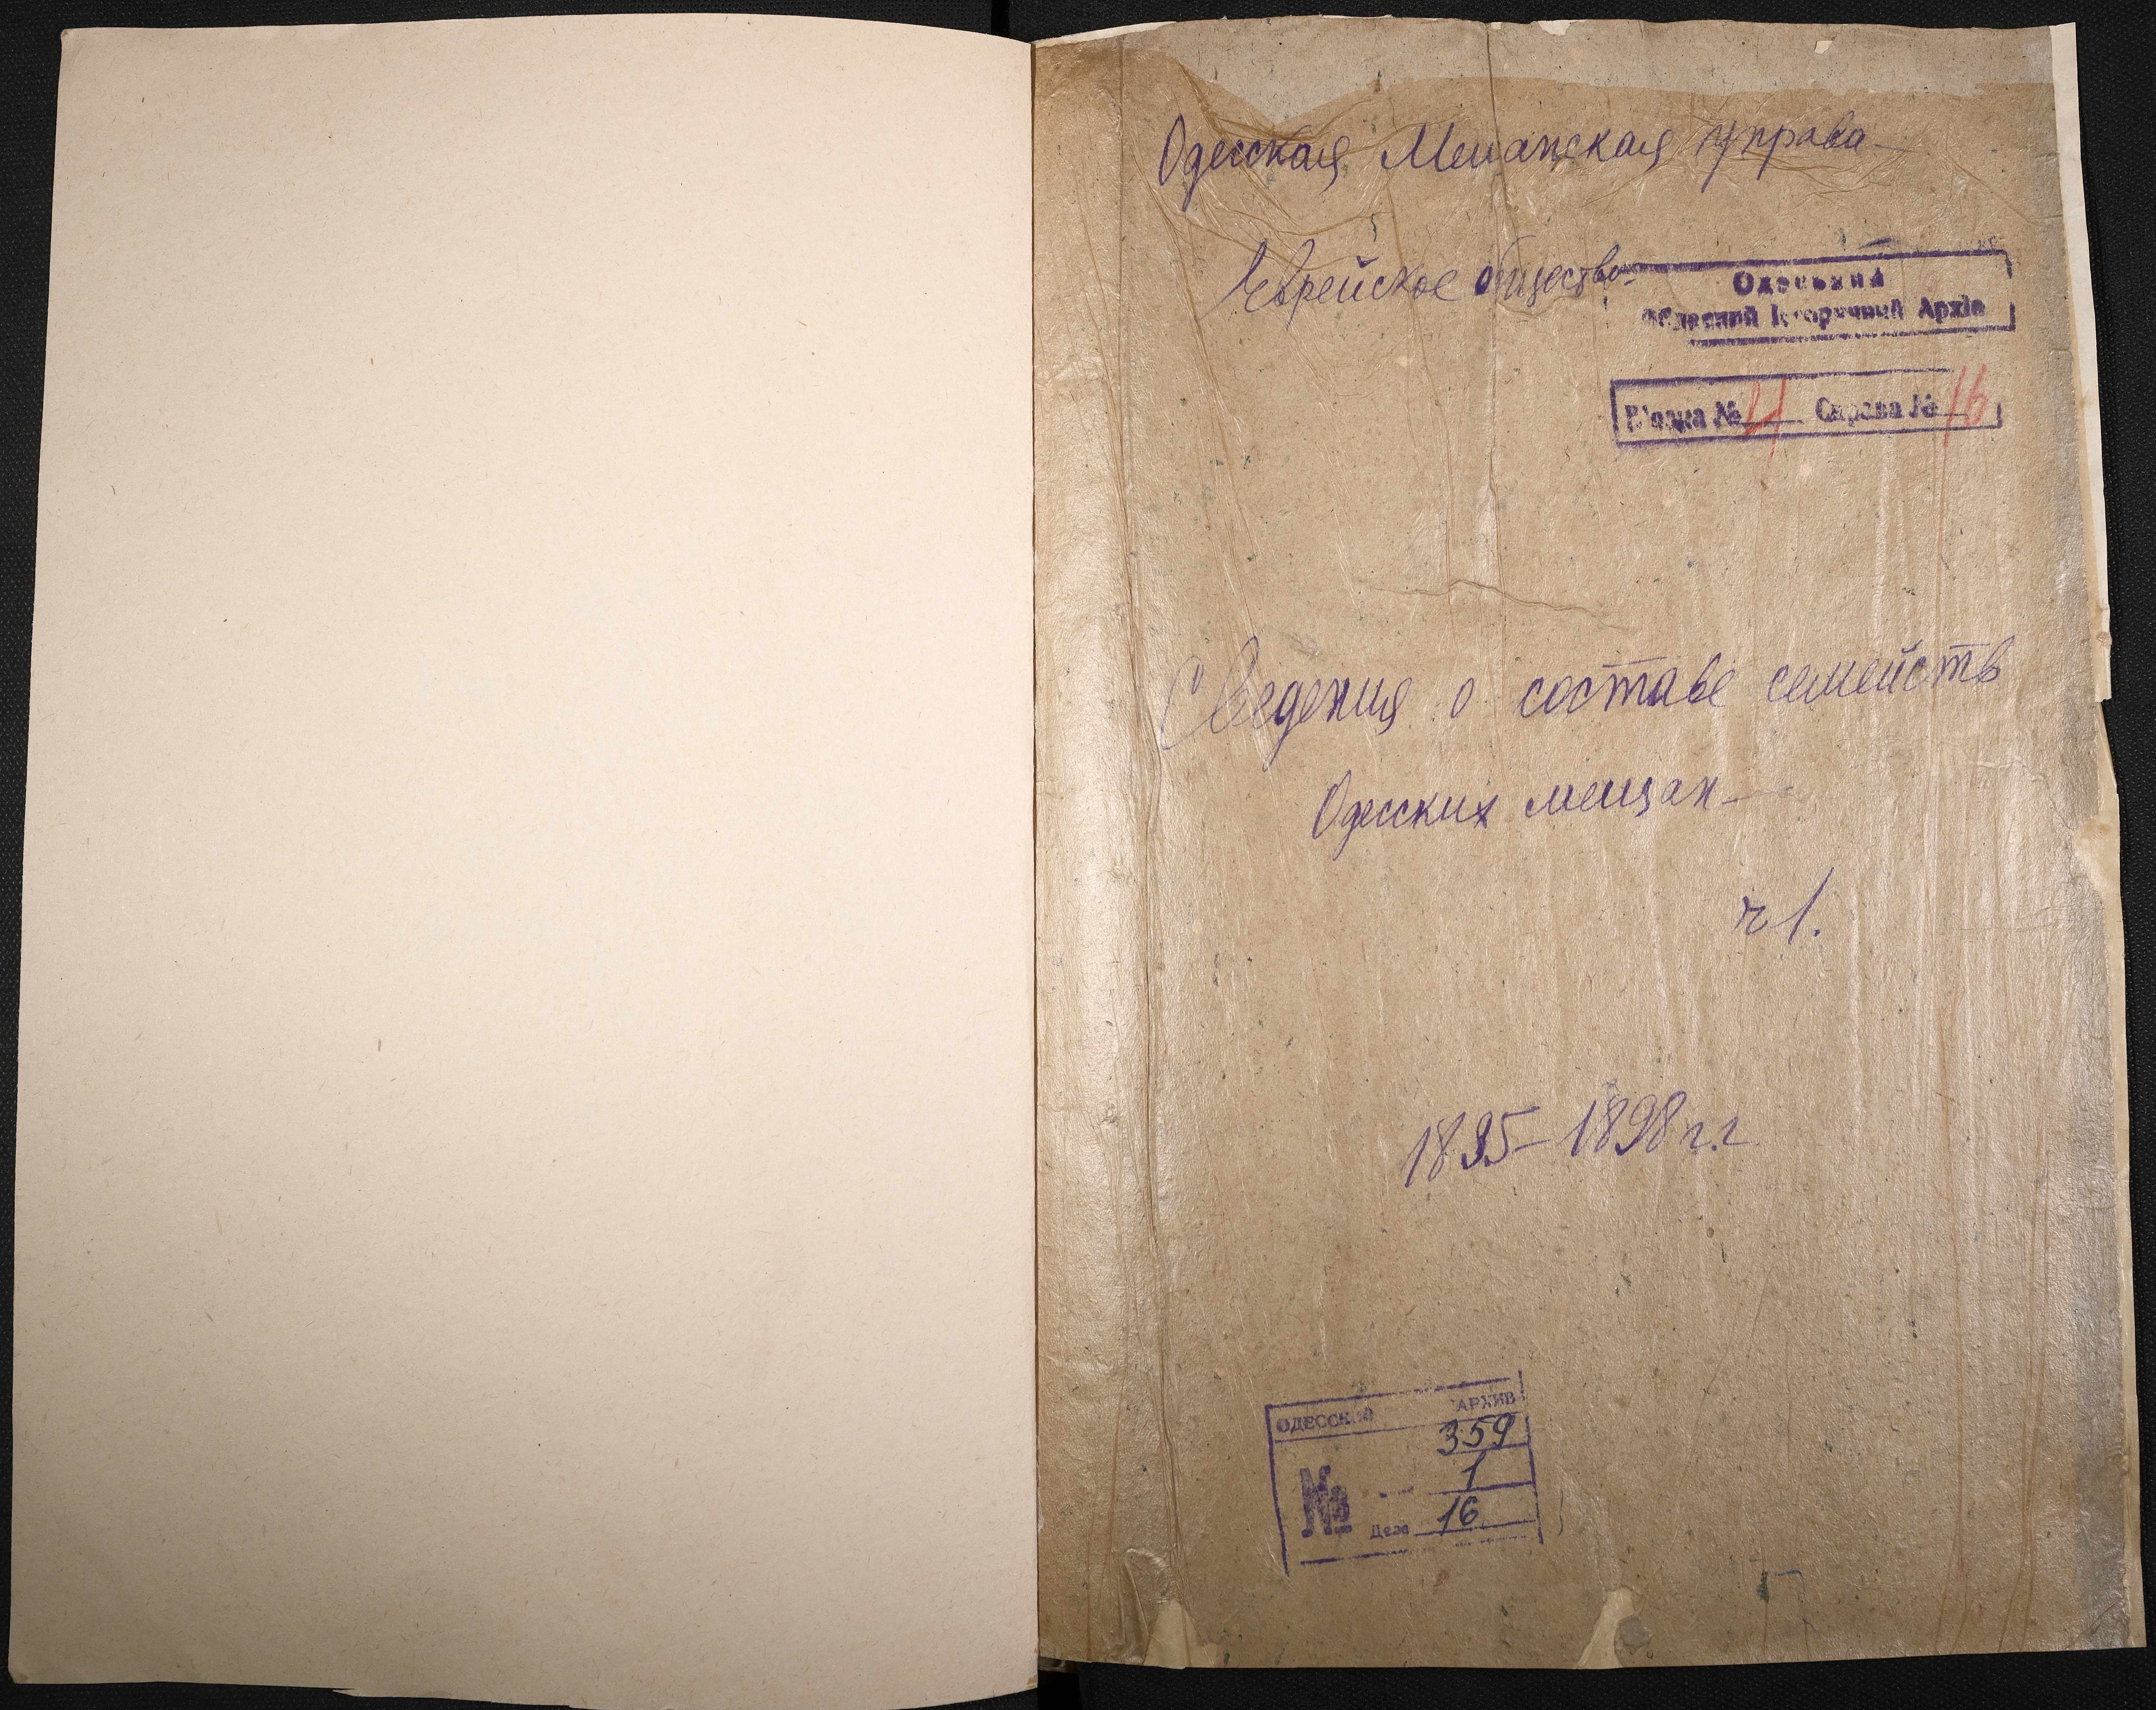 Одесская Мещанская управа
Еврейское общество
Одеський
Обласний Історичний Архів
В'язка № 4 Справа № 16
Сведения о составе семейств
Одесских мещан
ч 1.
1895-1898 г.г
ОДЕССКИЙ АРХИВ
359
1
№ Дело 16